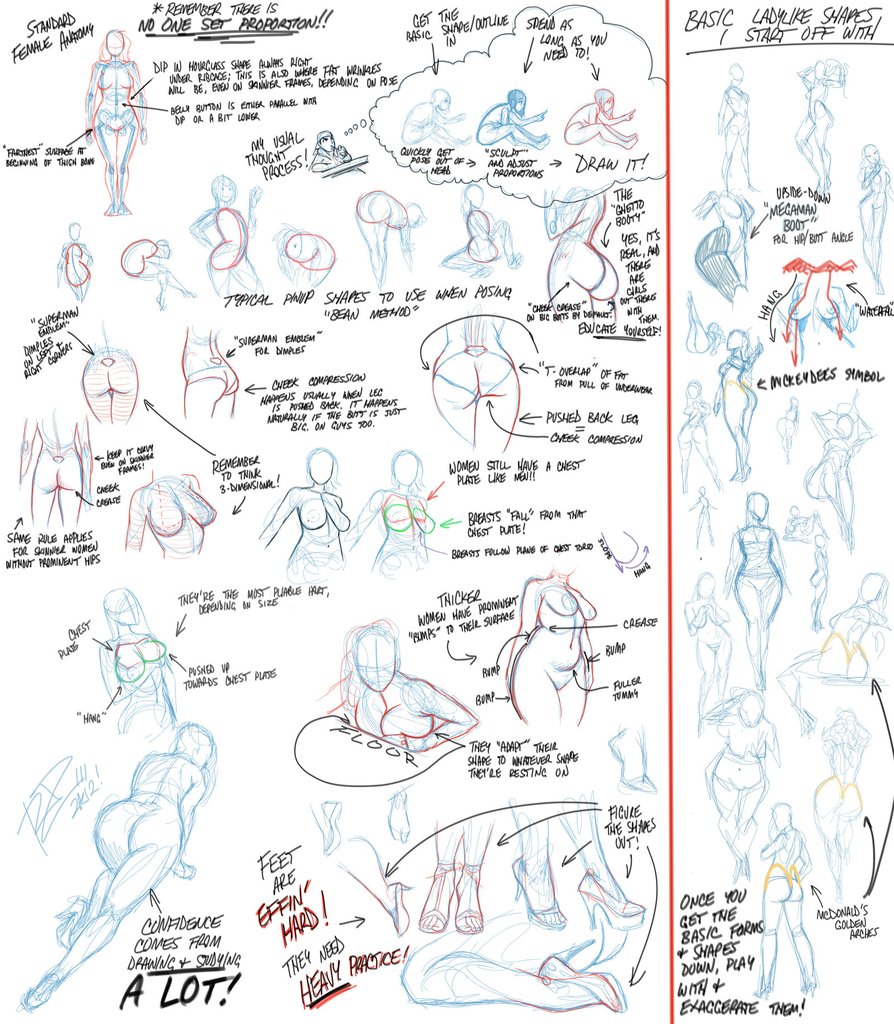 STANDARD
FEMALE ANATOMY
* REMEMBER THERE IS
NO ONE SET PROPORTION!!
DIP IN HOURGLASS SHAPE ALWAYS RIGHT
UNDER RIBCAGE; THIS IS ALSO WHERE FAT WRINKLES
WILL BE, EVEN ON SKINNIER FRAMES, DEPENDING ON POSE
BELLY BUTTON IS EITHER PARALLEL WITH
DIP OR A BIT LOWER
"FARTHEST" SURFACE AT
BEGINNING OF THIGH BONE
MY USUAL
THOUGHT
PROCESS!
GET THE
BASIC SHAPE/OUTLINE
IN
SPEND AS
LONG AS YOU
NEED TO!
QUICKLY GET
POSE OUT OF
HEAD
"SCULPT"
AND ADJUST
PROPORTIONS
DRAW IT!
TYPICAL PINUP SHAPES TO USE WHEN POSING
"BEAN METHOD"
THE
"GHETTO
BOOTY"
YES, IT'S
REAL, AND
THERE
ARE
GIRLS
OUT THERE
WITH
THEM.
EDUCATE YOURSELF!
"CHEEK CREASE"
ON BIG BUTTS BY DEFAULT.
"SUPERMAN
EMBLEM-
DIMPLES
ON LEFT &
RIGHT CORNERS
"SUPERMAN EMBLEM"
FOR DIMPLES
CHEEK COMPRESSION
HAPPENS USUALLY WHEN LEG
IS PUSHED BACK. IT HAPPENS
NATURALLY IF THE BUTT IS JUST
BIG. ON GUYS TOO.
"T-OVERLAP" OF FAT
FROM PULL OF UNDERWEAR
PUSHED BACK LEG
=
CHEEK COMPRESSION
KEEP IT CURVY
EVEN ON SKINNIER
FRAMES!
CHEEK
CREASE
SAME RULE APPLIES
FOR SKINNIER WOMEN
WITHOUT PROMINENT HIPS
REMEMBER
TO THINK
3-DIMENSIONAL!
WOMEN STILL HAVE A CHEST
PLATE LIKE MEN!!
BREASTS "FALL" FROM THAT
CHEST PLATE!
BREASTS FOLLOW PLANE OF CHEST TORSO
SLOPE
HANG
THEY'RE THE MOST PLIABLE PART,
DEPENDING ON SIZE
CHEST
PLATE
PUSHED UP
TOWARDS CHEST PLATE
"HANG"
THICKER
WOMEN HAVE PROMINENT
"BUMPS" TO THEIR SURFACE
CREASE
BUMP
BUMP
BUMP
FULLER
TUMMY
FLOOR
THEY "ADAPT" THEIR
SHAPE TO WHATEVER SHAPE
THEY'RE RESTING ON
2K12!
FEET
ARE
EFFIN'
HARD!
THEY NEED
HEAVY PRACTICE!
FIGURE
THE SHAPES
OUT!
CONFIDENCE
COMES FROM
DRAWING & STUDYING
A LOT!
BASIC LADYLIKE SHAPES
I START OFF WITH
UPSIDE-DOWN
"MEGAMAN
BOOT"
FOR HIP/BUTT ANGLE
HANG
"WATERFALL"
MICKEYDEES SYMBOL
MCDONALD'S
GOLDEN
ARCHES
ONCE YOU
GET THE
BASIC FORMS
& SHAPES
DOWN, PLAY
WITH &
EXAGGERATE THEM!